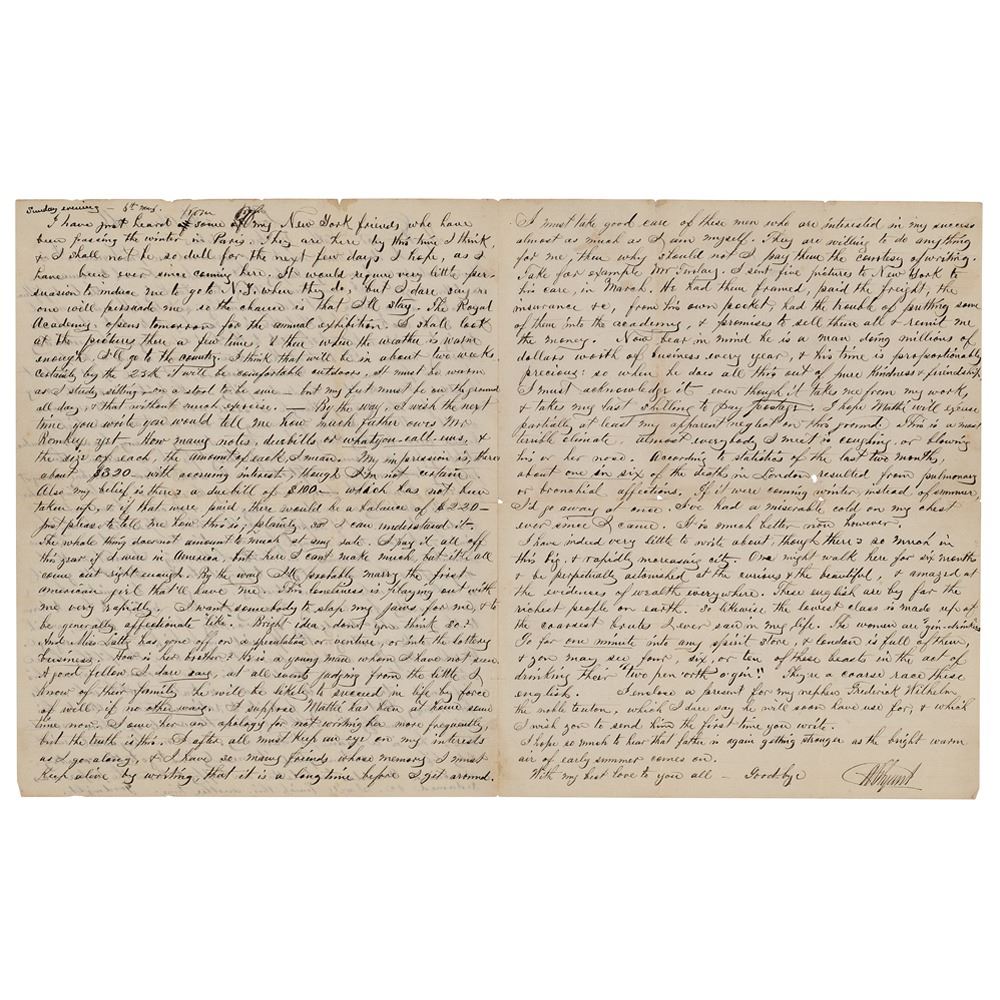 Sunday evening — 6th May.
I have just heard from some of my New York friends who have
been passing the winter in Paris. They are here by this time I think,
& I shall not be so dull for the next few days I hope, as I
have been ever since coming here. It would require very little per-
suasion to induce me to go to N.Y. when they do, but I dare say no
one will persuade me so the chance is that I'll stay. The Royal
Academy opens tomorrow for the annual exhibition. I shall look
at the pictures there a few times, & then when the weather is warm
enough I'll go to the country. I think that will be in about two weeks.
Certainly by the 25th it will be comfortable outdoors. It must be warm
as I study sitting on a stool to be sure — but my feet must be on the ground
all day, & that without much exercise. — By the way, I wish the next
time you wrote you would tell me how much father owes Mr
yet — How many notes, duebills or what-you-call-ums, &
the size of each, the amount of each I mean. My impression is, there's
about $320 — with accruing interest, though I'm not certain
Also my belief is there's a duebill of $100 — which has not been
taken up, & if that were paid, there would be a balance of $220 —
just please to tell me how this is, plainly, so I can understand it.
The whole thing does not amount to much at any rate. I pay it all off
this year if I were in America, but here I can't make much, but it'll all
come out right enough. By the way I'll probably marry the first
american girl that'll have me. This loneliness is playing out with
me very rapidly. I want somebody to slap my jaws for me, & to
be generally affectionate like. Bright idea, don't you think so?
And Miss has gone off on a speculation or venture, or into the lottery
business. How is her brother? He is a young man whom I have not seen.
A good fellow I dare say, at all events judging from the little I
know of their family, he will be likely to succeed in life by force
of will if no other way. I suppose Mattie has been at home some
time now. I owe her an apology for not writing her more frequently,
but the truth is this. I after all must keep an eye on my interests
as I go along, & I have so many friends whose memory I must
keep alive by writing, that it is a long time before I get around.
I must take good care of these men who are interested in my success
almost as much as I am myself. They are willing to do anything
for me, then why should not I pay them the courtesy of writing.
Take for example Mr I sent five pictures to New York to
his care, in March. He had them framed, paid the freight, the
insurance &c, from his own pocket, had the trouble of putting some
of them into the academy, & promises to sell them all & remit me
the money. Now bear in mind he is a man doing millions of
dollars worth of business every year, & his time is proportionably
precious: so when he does all this out of pure kindness & friendship
I must acknowledge it even though it takes me from my work,
& takes my last shilling to pay postage. I hope Mattie will excuse
partially at least my apparent neglect on this ground. This is a most
terrible climate, almost everybody I meet is coughing, or blowing
his or her nose. According to statistics of the last two months,
about one in six of the deaths in London resulted from pulmonary
or bronchial affections. If it were coming winter, instead of summer
I'd go away at once. I've had a miserable cold on my chest
ever since I came. It is much better now however.
I have indeed very little to write about, though there's so much in
this big, & rapidly increasing city. One might walk here for six months
& be perpetually astonished at the curious & the beautiful, & amazed at
the evidences of wealth everywhere. These english are by far the
richest people on earth. So likewise the lowest class is made up of
the coarsest brutes I ever saw in my life. The women are "gin-drinkers
Go for one minute into any spirit store, & london is full of them,
& you may see four, six, or ten of these beasts in the act of
drinking their "two pen'orth o'gin". They're a coarse race these
english. I enclose a present for my nephew Frederick Wilhelm
the noble teuton, which I dare say he will soon have use for, & which
I wish you to send him the first time you write.
I hope so much to hear that father is again getting stronger as the bright warm
air of early summer comes on.
With my best love to you all — Goodbye